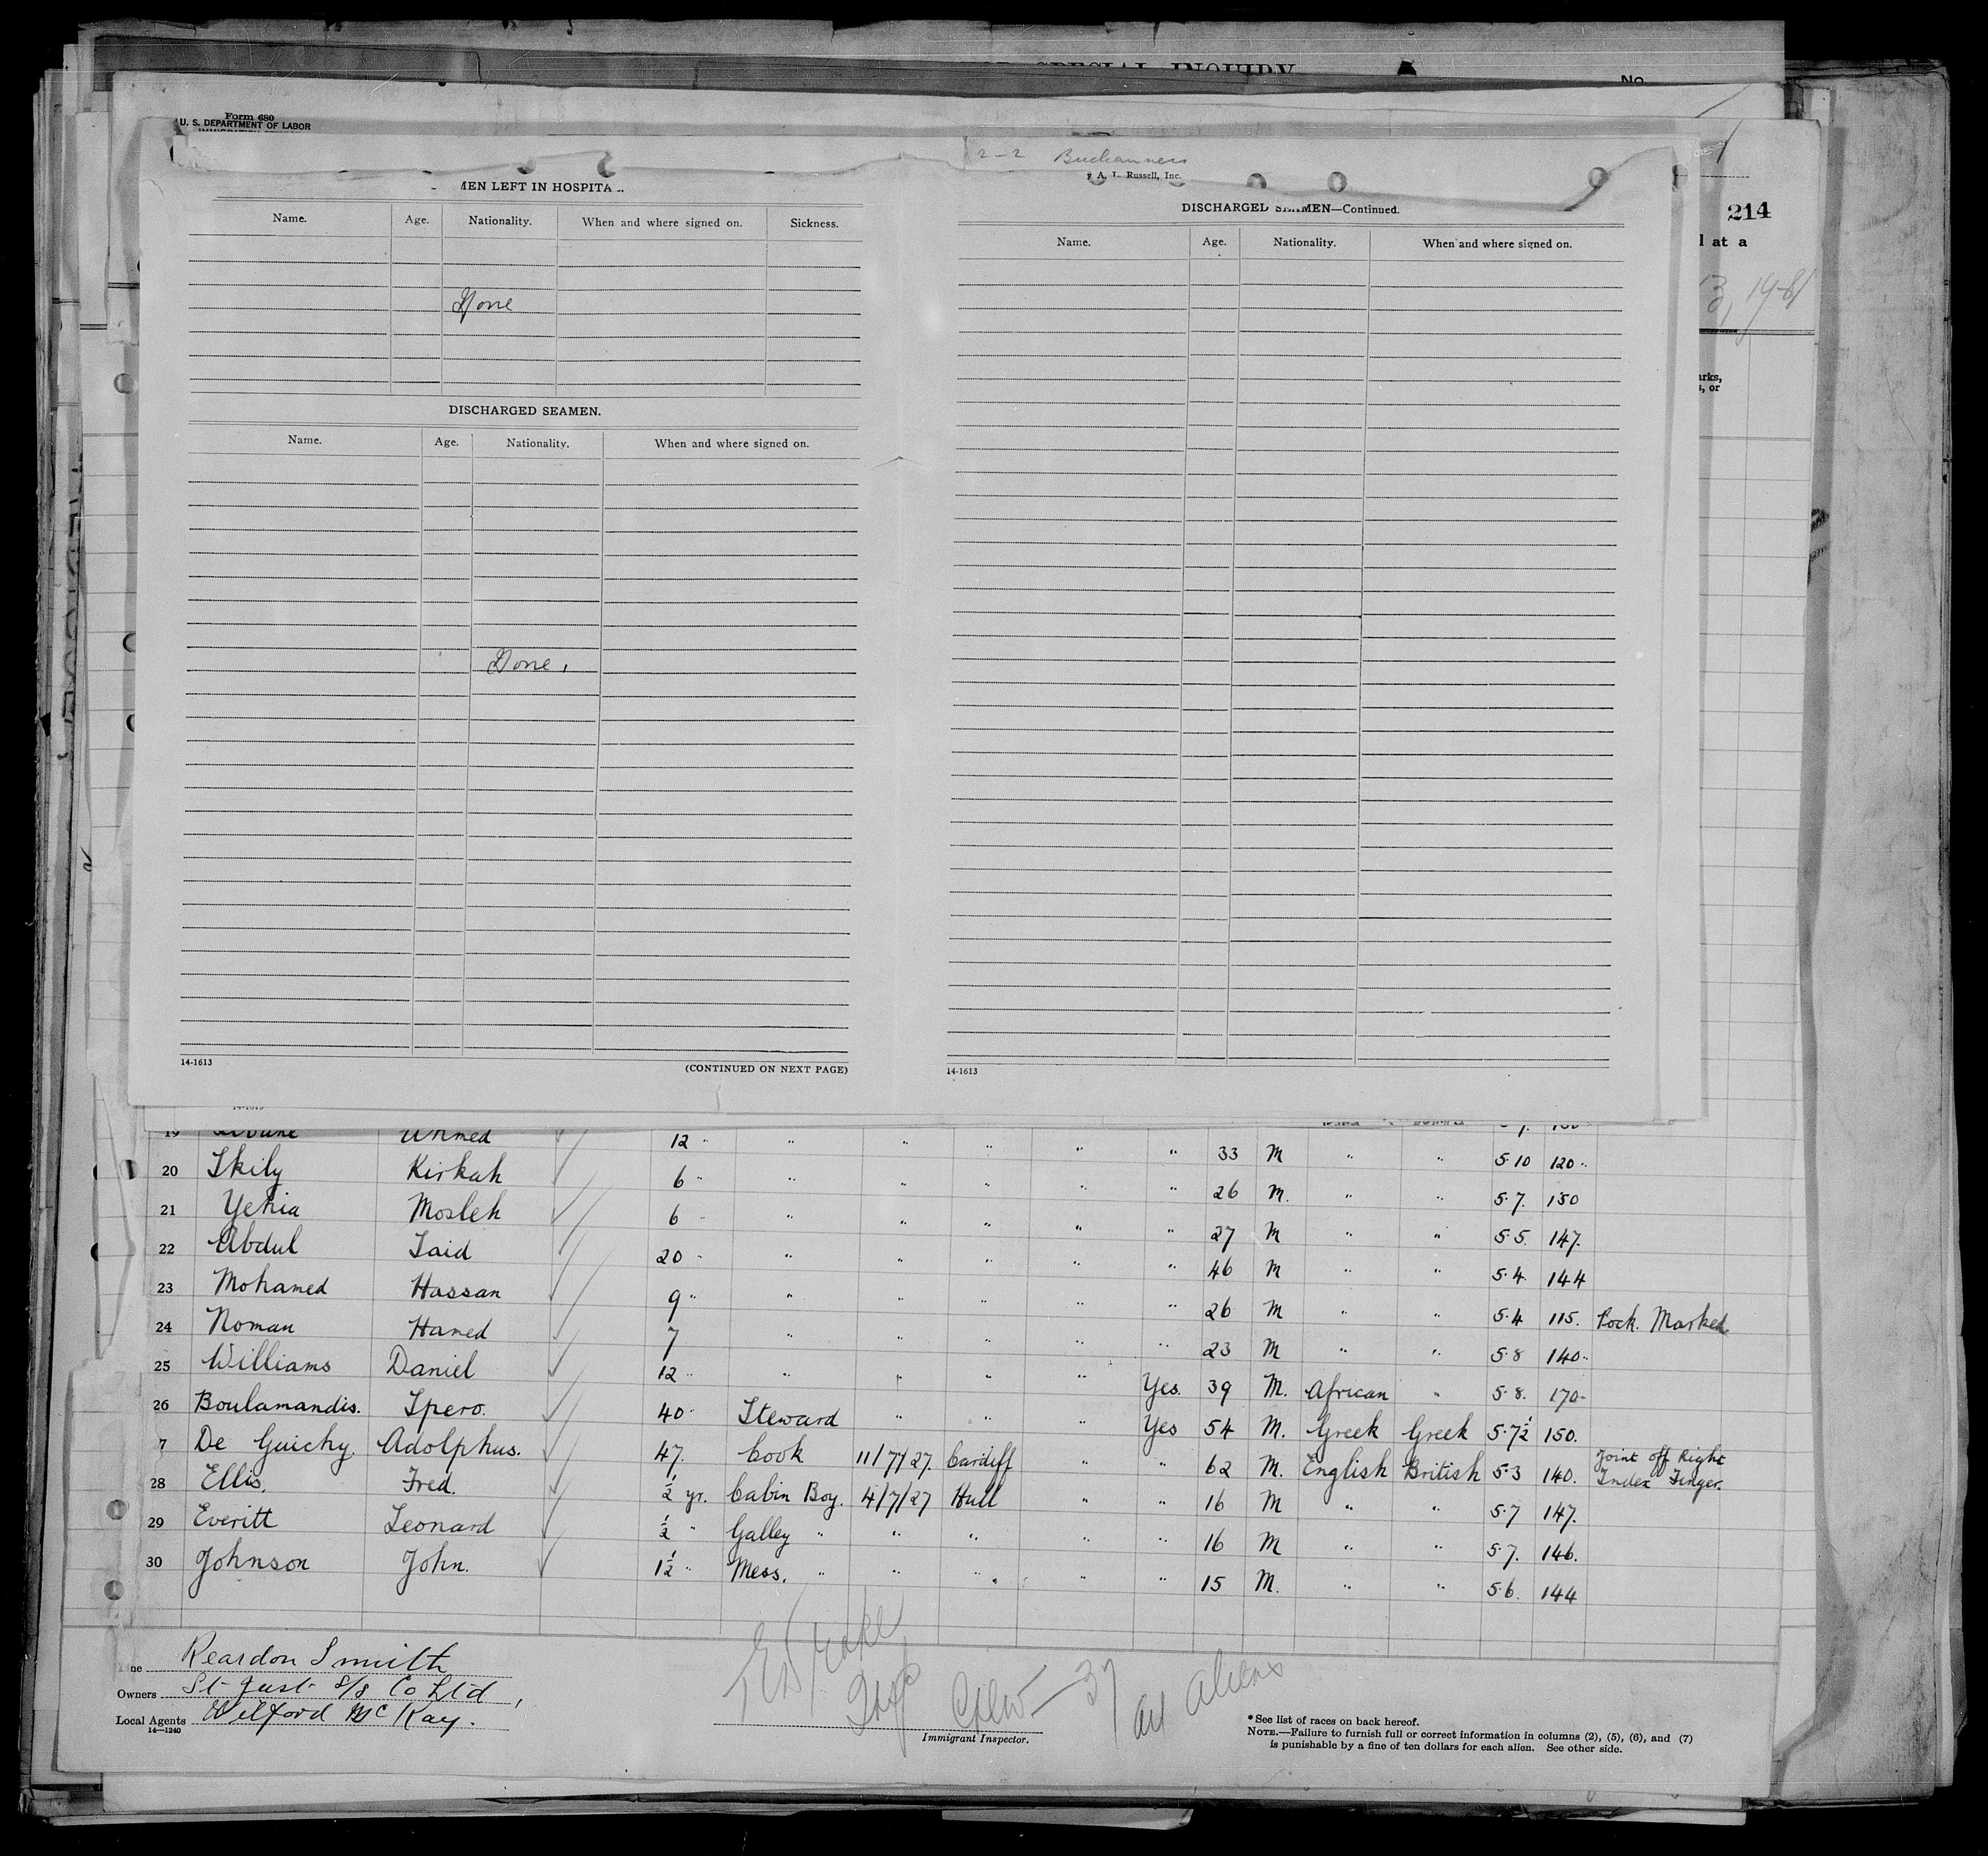 SPECIAL INQUIRY
No.
Form 680
U. S. DEPARTMENT OF LABOR
2-2 Buchanness
A. L. Russell, Inc.
214
l at a
13, 14-61
arks,
s, or
MEN LEFT IN HOSPITA
Name. Age. Nationality. When and where signed on. Sickness.
None
DISCHARGED SEAMEN.
Name. Age. Nationality. When and where signed on.
None.
14-1613 (CONTINUED ON NEXT PAGE)
DISCHARGED SEAMEN—Continued.
Name. Age. Nationality. When and where signed on.
14-1613
19 Ahmed 12 " " " " " " 33 M " " 5·10 120 "
20 Skily Kirkah 6 " " " " " " 26 M. " " 5·7. 150
21 Yehia Mosleh 6 " " " " " " 27 M " " 5·5. 147.
22 Abdul Said 20 " " " " " " 46 M " " 5·4. 144
23 Mohamed Hassan 9 " " " " " " 26 M " " 5·4 115. Pock Marked.
24 Noman Hamed 7 " " " " " 23 M " " 5·8 140 "
25 Williams Daniel 12 " " " " " Yes. 39 M. African " 5·8. 170
26 Boulamandis. Spero. 40 " Steward " " " Yes 54 M. Greek Greek 5·7½ 150.
7 De Guichy. Adolphus. 47. Cook 11/7/27. Cardiff " " 62 M. English British 5·3 140. Joint off Right Index Finger.
28 Ellis. Fred. ½ yr. Cabin Boy. 4/7/27 Hull " " 16 M " " 5·7 147.
29 Everitt Leonard ½ " Galley " " " " " 16 M " " 5·7. 146.
30 Johnson John. 1½ " Mess. " " " " " 15 M. " " 5·6. 144
Line Reardon Smith
Owners St Just S/S Co Ltd,
Local Agents Wilford McKay.
14—1240
Insp
Crew—37
all aliens
Immigrant Inspector.
* See list of races on back hereof.
NOTE.—Failure to furnish full or correct information in columns (2), (5), (6), and (7)
is punishable by a fine of ten dollars for each alien. See other side.